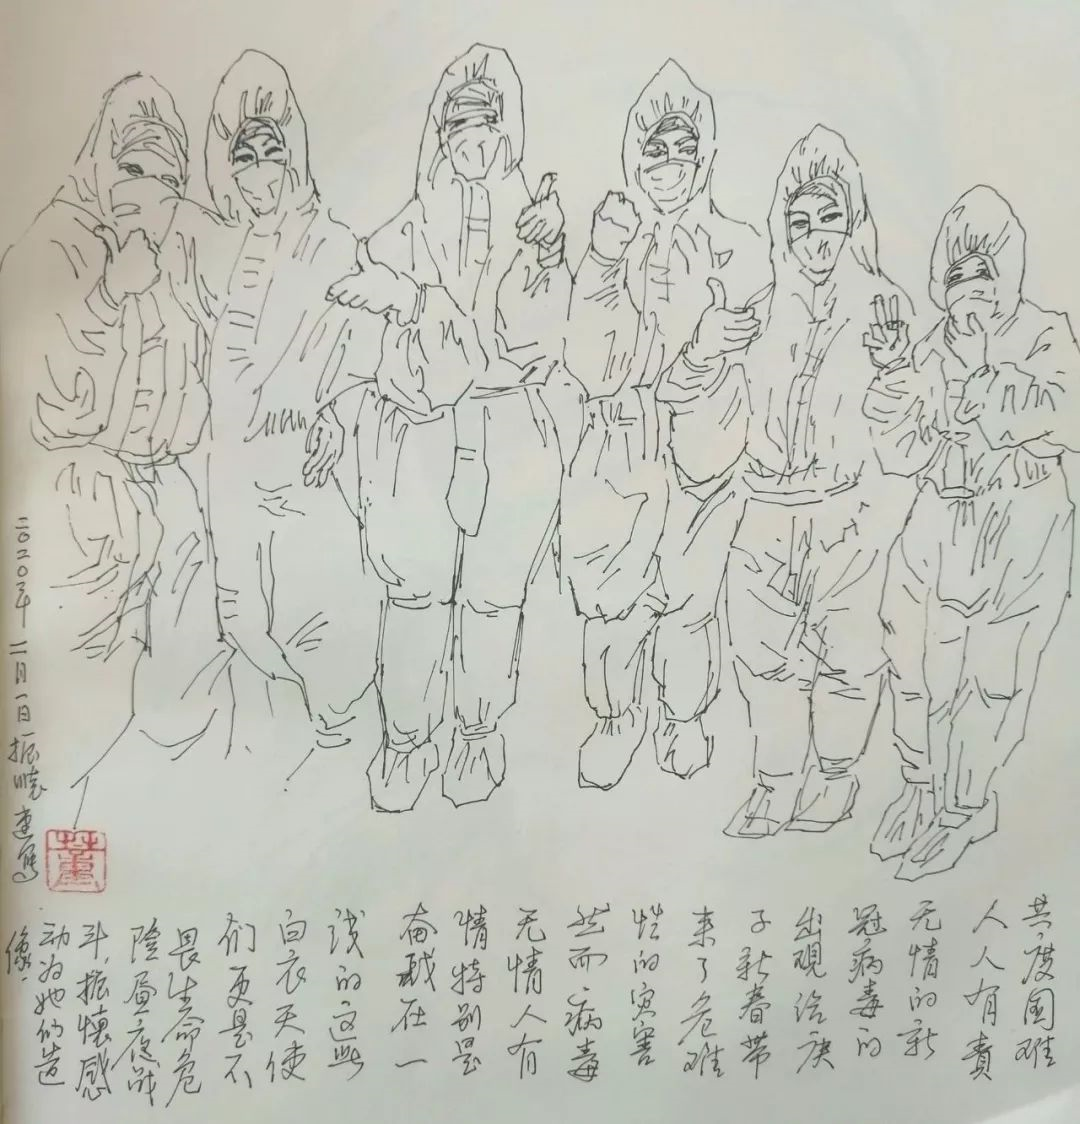 共度国难
人人有責
无情的新
冠病毒的
出现给庚
子新春带
来了危难
性的灾害
然而病毒
无情人有
情特别是
奋战在一
线的这些
白衣天使
们更是不
畏生命危
险昼夜战
斗,振懷感
动为她们造
像.
二〇二〇年二月一日振懷速写
董